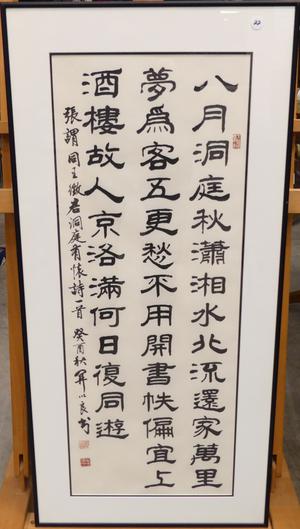 八月洞庭秋瀟湘水北流還家萬里
夢爲客五更愁不用開書帙偏宜上
酒樓故人京洛滿何日復同遊
張謂同王徵君洞庭有懷詩一首 癸酉秋 以良書
22